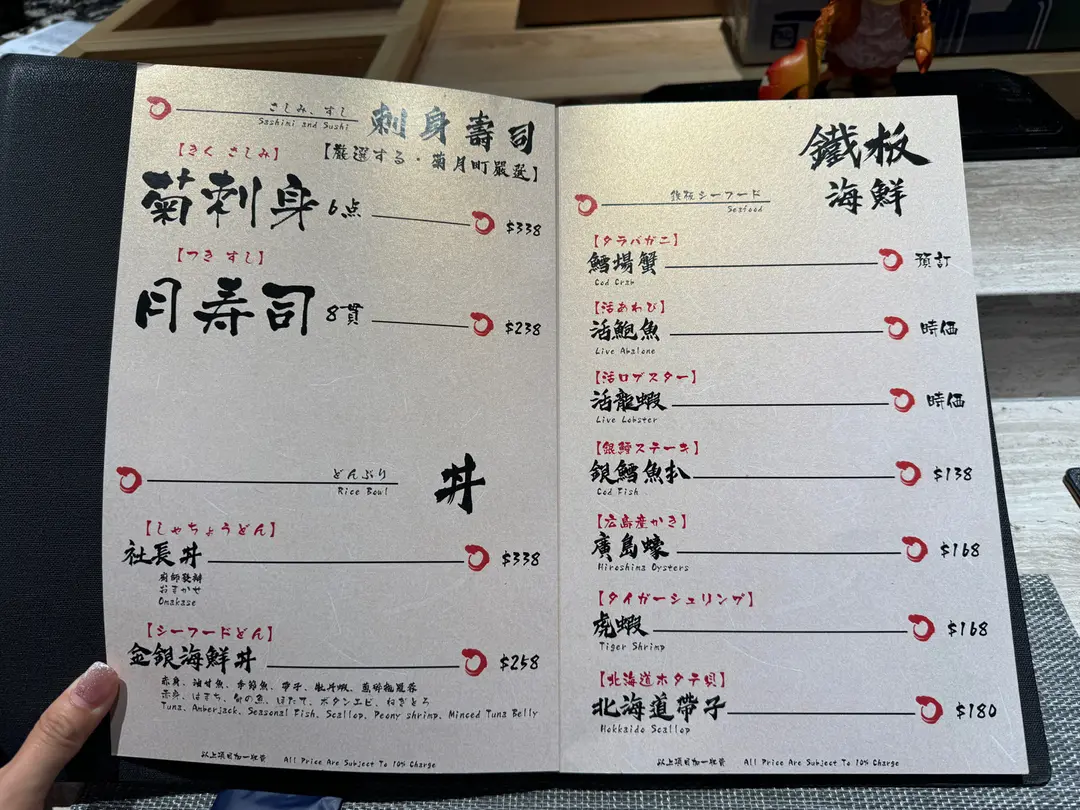 さしみ、すし
Sashimi and Sushi
刺身壽司
【厳選する・菊月町嚴選】
【きく さしみ】
菊刺身 6点 $338
【つき すし】
月寿司 8貫 $238
どんぶり
Rice Bowl
丼
【しゃちょうどん】
社長丼 $338
廚師發辦
おまかせ
Omakase
【シーフードどん】
金銀海鮮丼 $258
赤身、油甘魚、季節魚、帶子、牡丹蝦、
赤身、はまち、旬の魚、ほたて、ボタンエビ、ねぎとろ
Tuna, Amberjack, Seasonal Fish, Scallop, Peony shrimp, Minced Tuna Belly
以上項目加一收費 All Price Are Subject To 10% Charge
鐵板
海鮮
鉄板シーフード
Seafood
【タラバガニ】
鱈場蟹 預訂
Cod Crab
【活あわび】
活鮑魚 時価
Live Abalone
【活ロブスター】
活龍蝦 時価
Live Lobster
【銀鱈ステーキ】
銀鱈魚扒 $138
Cod Fish
【広島産かき】
廣島蠔 $168
Hiroshima Oysters
【タイガーシュリンプ】
虎蝦 $168
Tiger Shrimp
【北海道ホタテ貝】
北海道帶子 $180
Hokkaido Scallop
以上項目加一收費 All Price Are Subject To 10% Charge